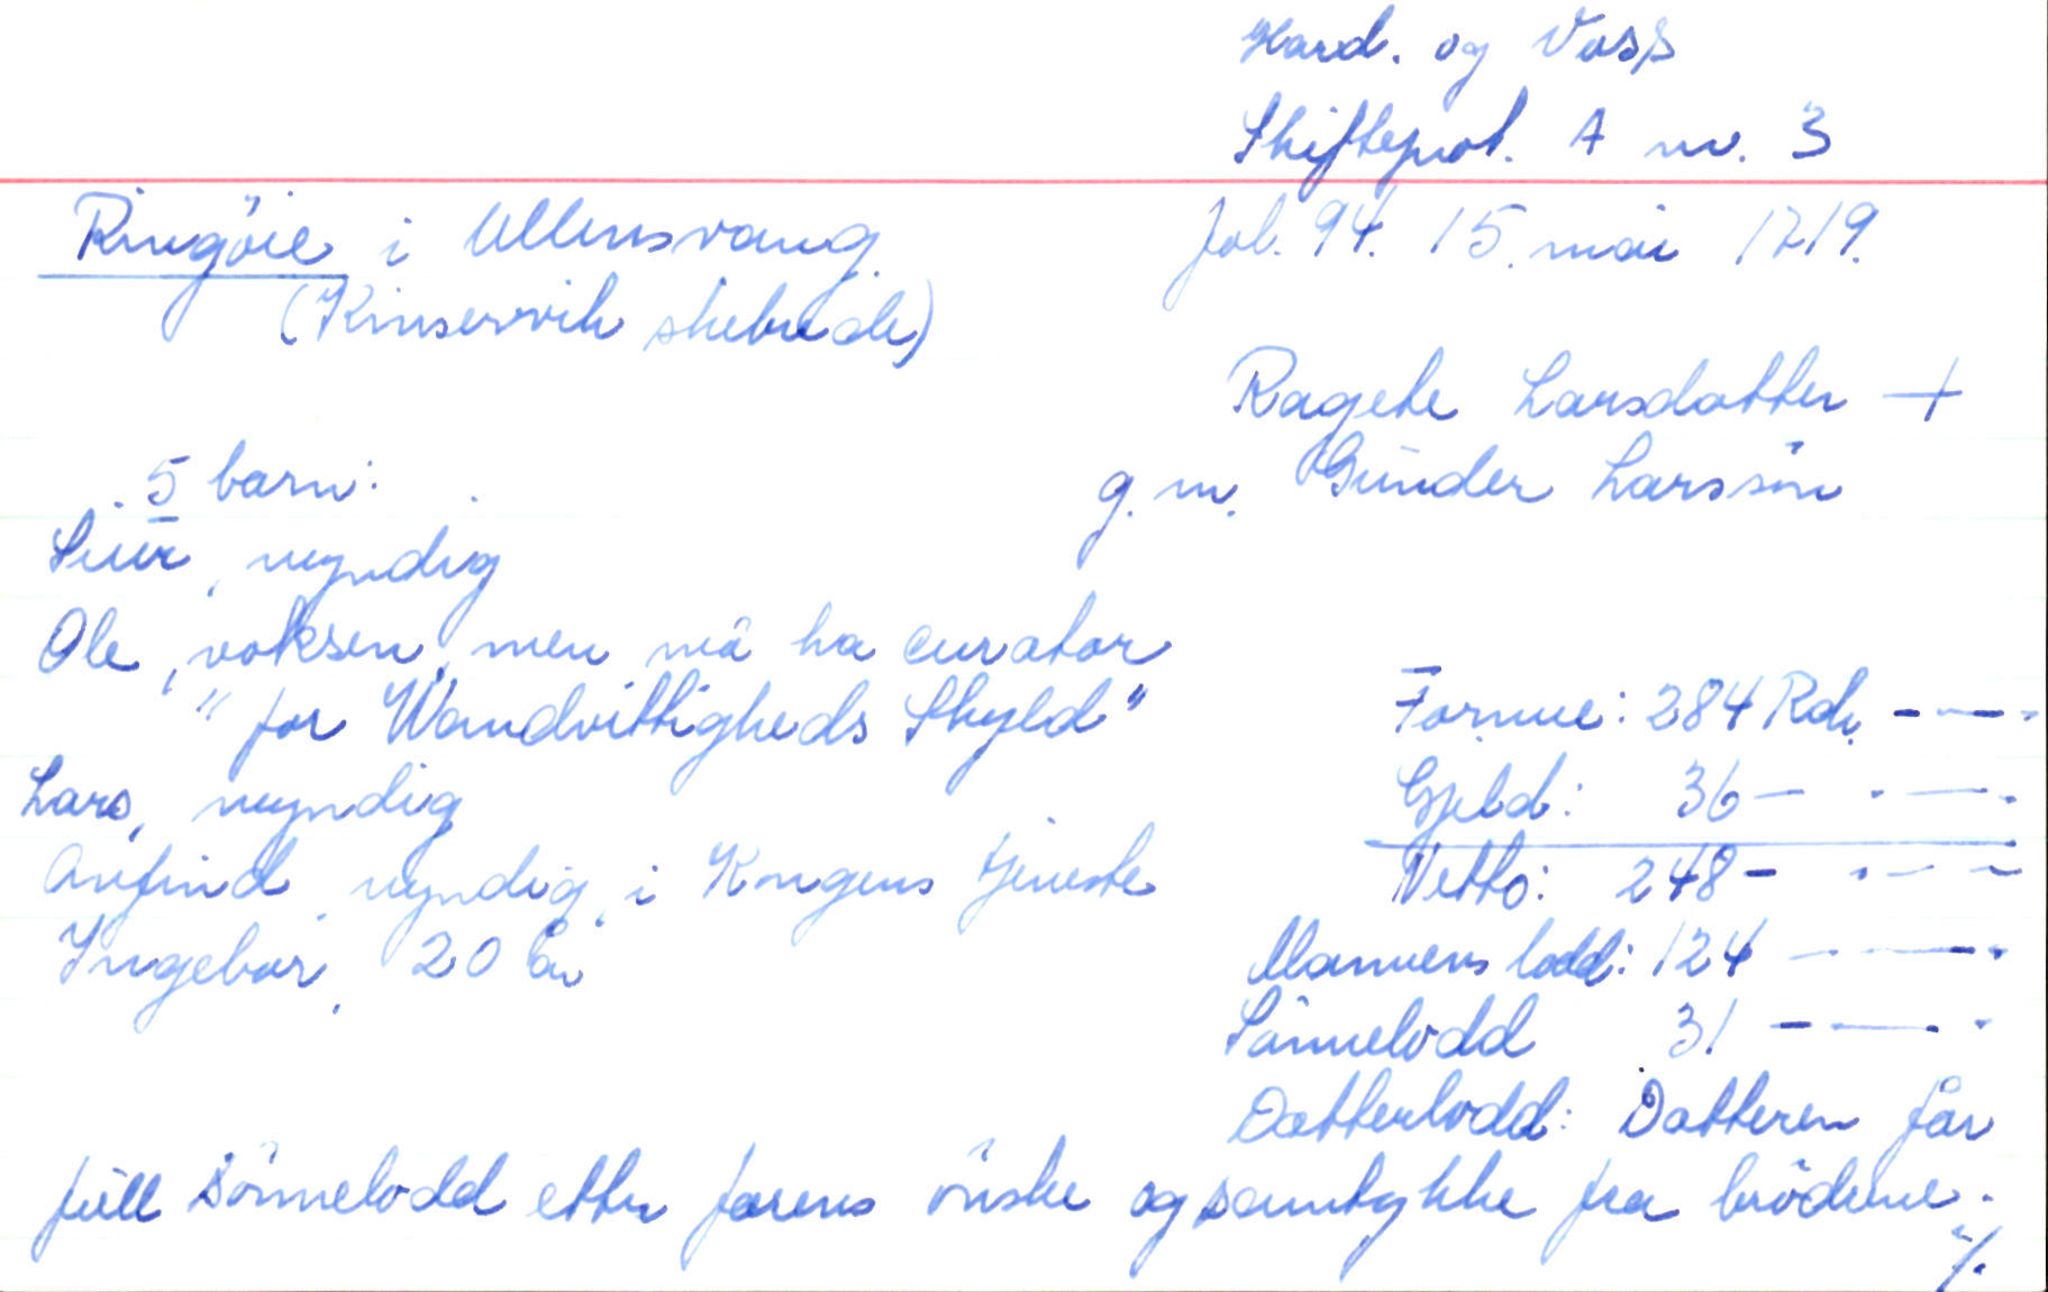 Hard. og Voss
Skifteprot. A nr. 3
Ringöie i Ullensvang.
fol. 94. 15. mai 1719.
(Kinservik skibrede)
Ragete Larsdatter +
g.m. Gunder Larssön
5 barn:
Siur, myndig
Ole, voksen, men må ha curator
"for Wandvittigheds Skyld"
Lars, myndig
Arfind, myndig, i Kongens tjeneste
Ingebor, 20 år
Formue: 284 Rdr. - — -
Gjeld: 36 — - — -
Netto: 248 - - — -
Mannens lodd: 124 — — -
Sönnelodd 31 - — -
Datterlodd: Datteren får
full sönnelodd etter farens önske og samtykke fra brödrene.
./.